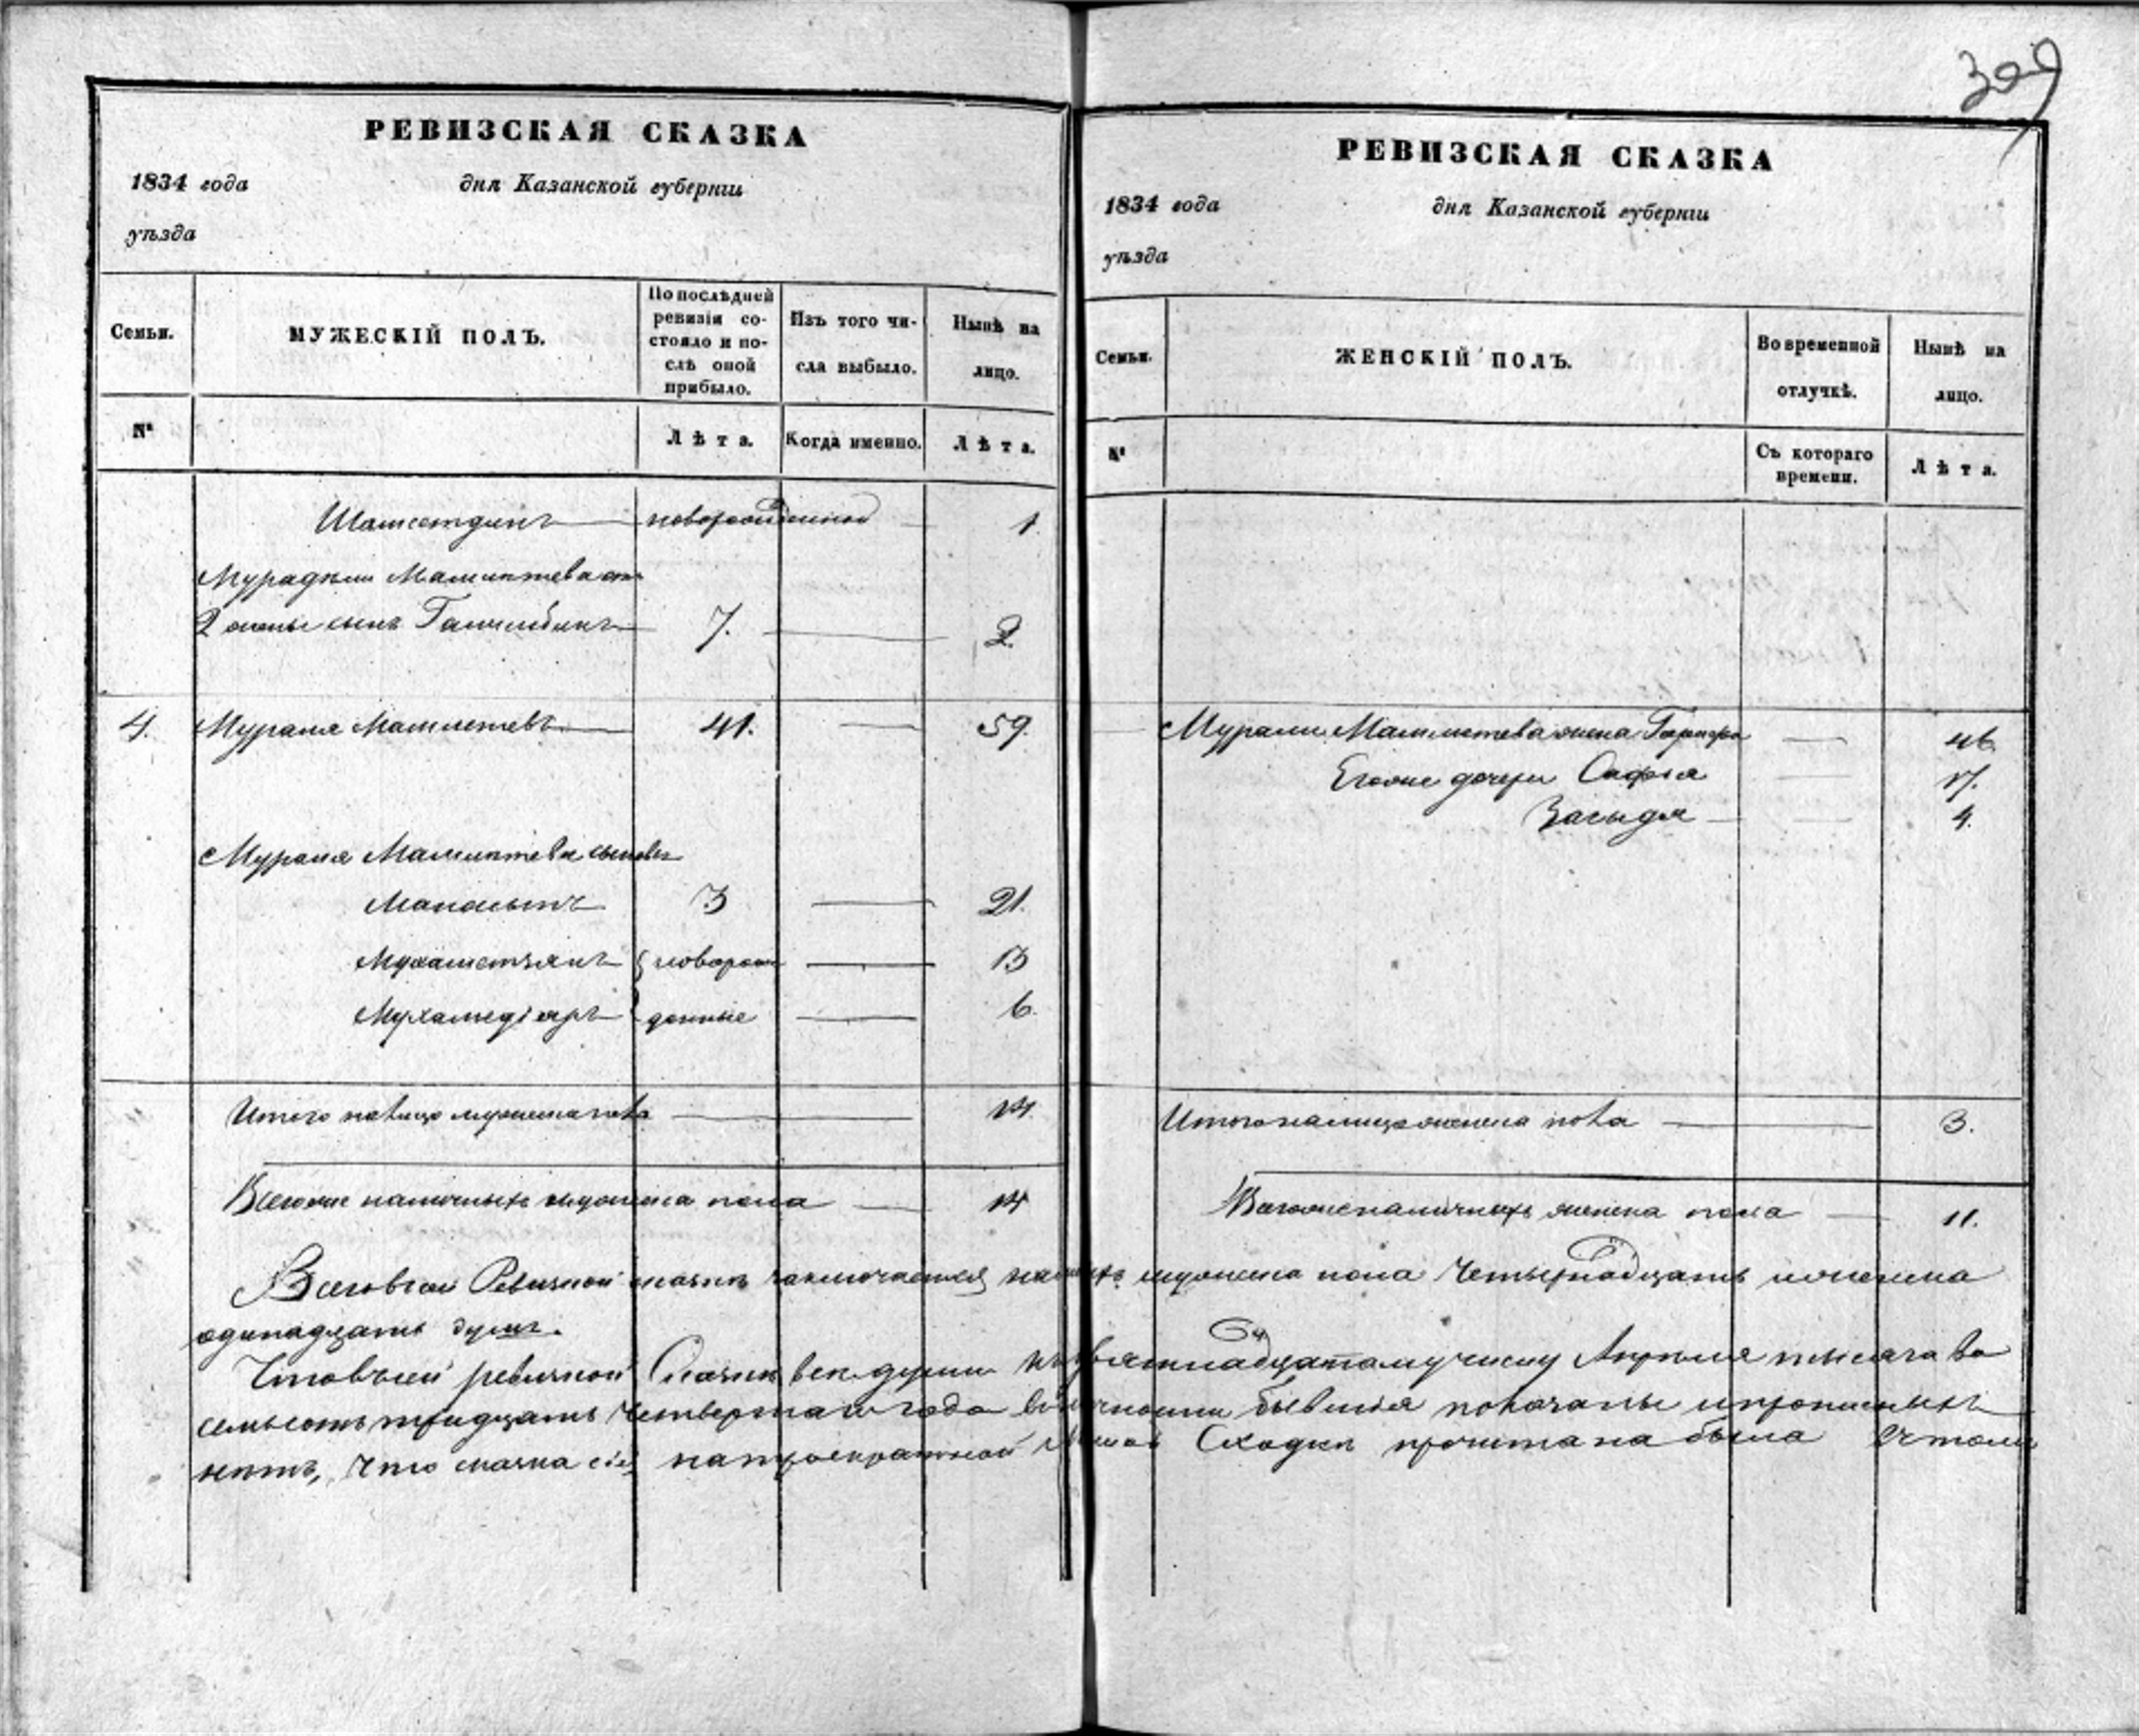 309
РЕВИЗСКАЯ СКАЗКА
1834 года дня Казанской губернiи
уѣзда
Семьи.
МУЖЕСКIЙ ПОЛЪ.
По послѣдней
ревизiи со-
стояло и по-
слѣ оной
прибыло.
Изъ того чи-
сла выбыло.
Нынѣ на
лицо.
№
Лѣта.
Когда именно.
Лѣта.
Шамсетдинъ новорожденной 1.
Мурадыми
2 жены сынъ 7. 2.
4. Мураля Маметевъ 41. 59.
Мураля сыновья
3 21.
Мухаметзянъ новорож 13
Мухамедiяръ денные 6.
Итого налицо мужеска пола 14.
Всегоже наличныхъ мужеска пола 14
РЕВИЗСКАЯ СКАЗКА
1834 года дня Казанской губернiи
уѣзда
Семьи.
ЖЕНСКIЙ ПОЛЪ.
Во временной
отлучкѣ.
Нынѣ на
лицо.
№
Съ котораго
времени.
Лѣта.
Мурали жена 46.
Егоже дочери Сафія 17.
4.
Итого налицо женска пола 3.
Всегоже наличныхъ женска пола 11.
Ревизкой сказкѣ заключается мужеска пола четырнадцать и женска
одинадцать душъ.
Что въ сей ревизкой Сказкѣ все души числу Апреля тысяча во
семьсотъ тридцать четвертаго года въ наличности бывшiя показаны и прописныхъ
нетъ, что сказка сiя на троекратной Сходкѣ прочитана была